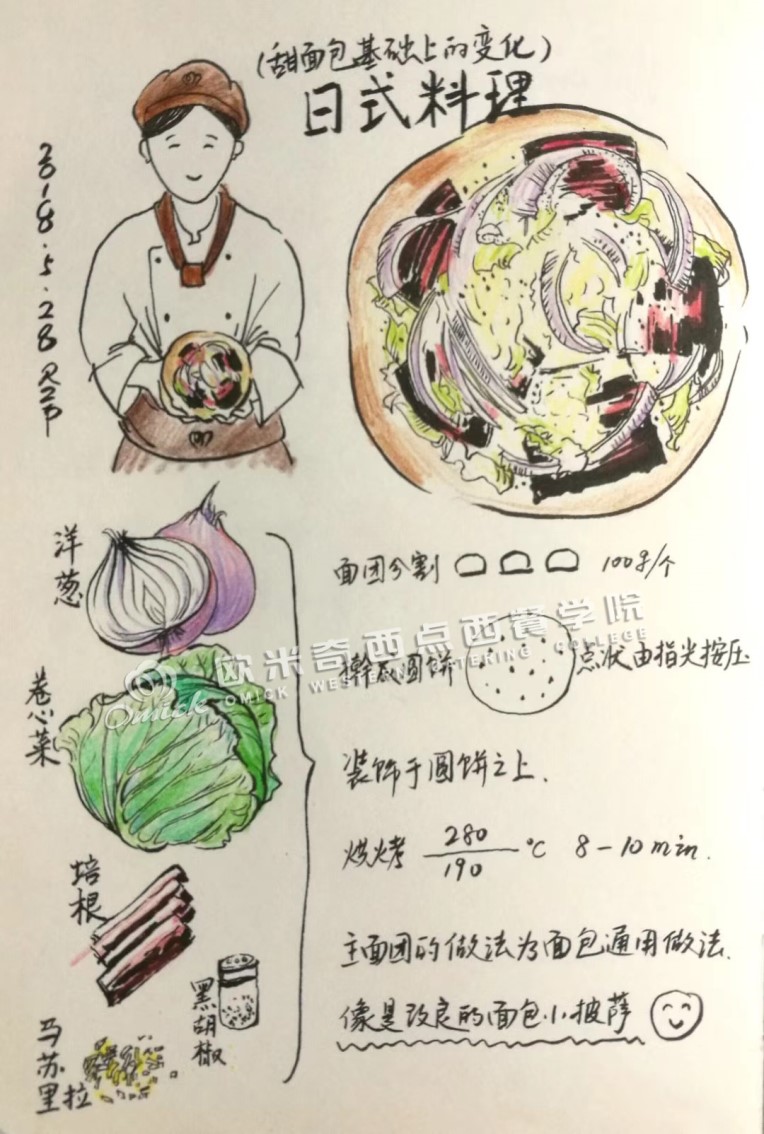 (甜面包基础上的变化)
日式料理
2018.5.28
洋葱
卷心菜
培根
黑胡椒
马苏里拉
面团分割 100g/个
擀成圆饼 点状由指尖按压
装饰于圆饼之上.
烘烤 280/190 °C 8-10min.
主面团的做法为面包通用做法.
像是改良的面包小披萨
Omick 欧米奇西点西餐学院
OMICK WESTERN CATERING COLLEGE